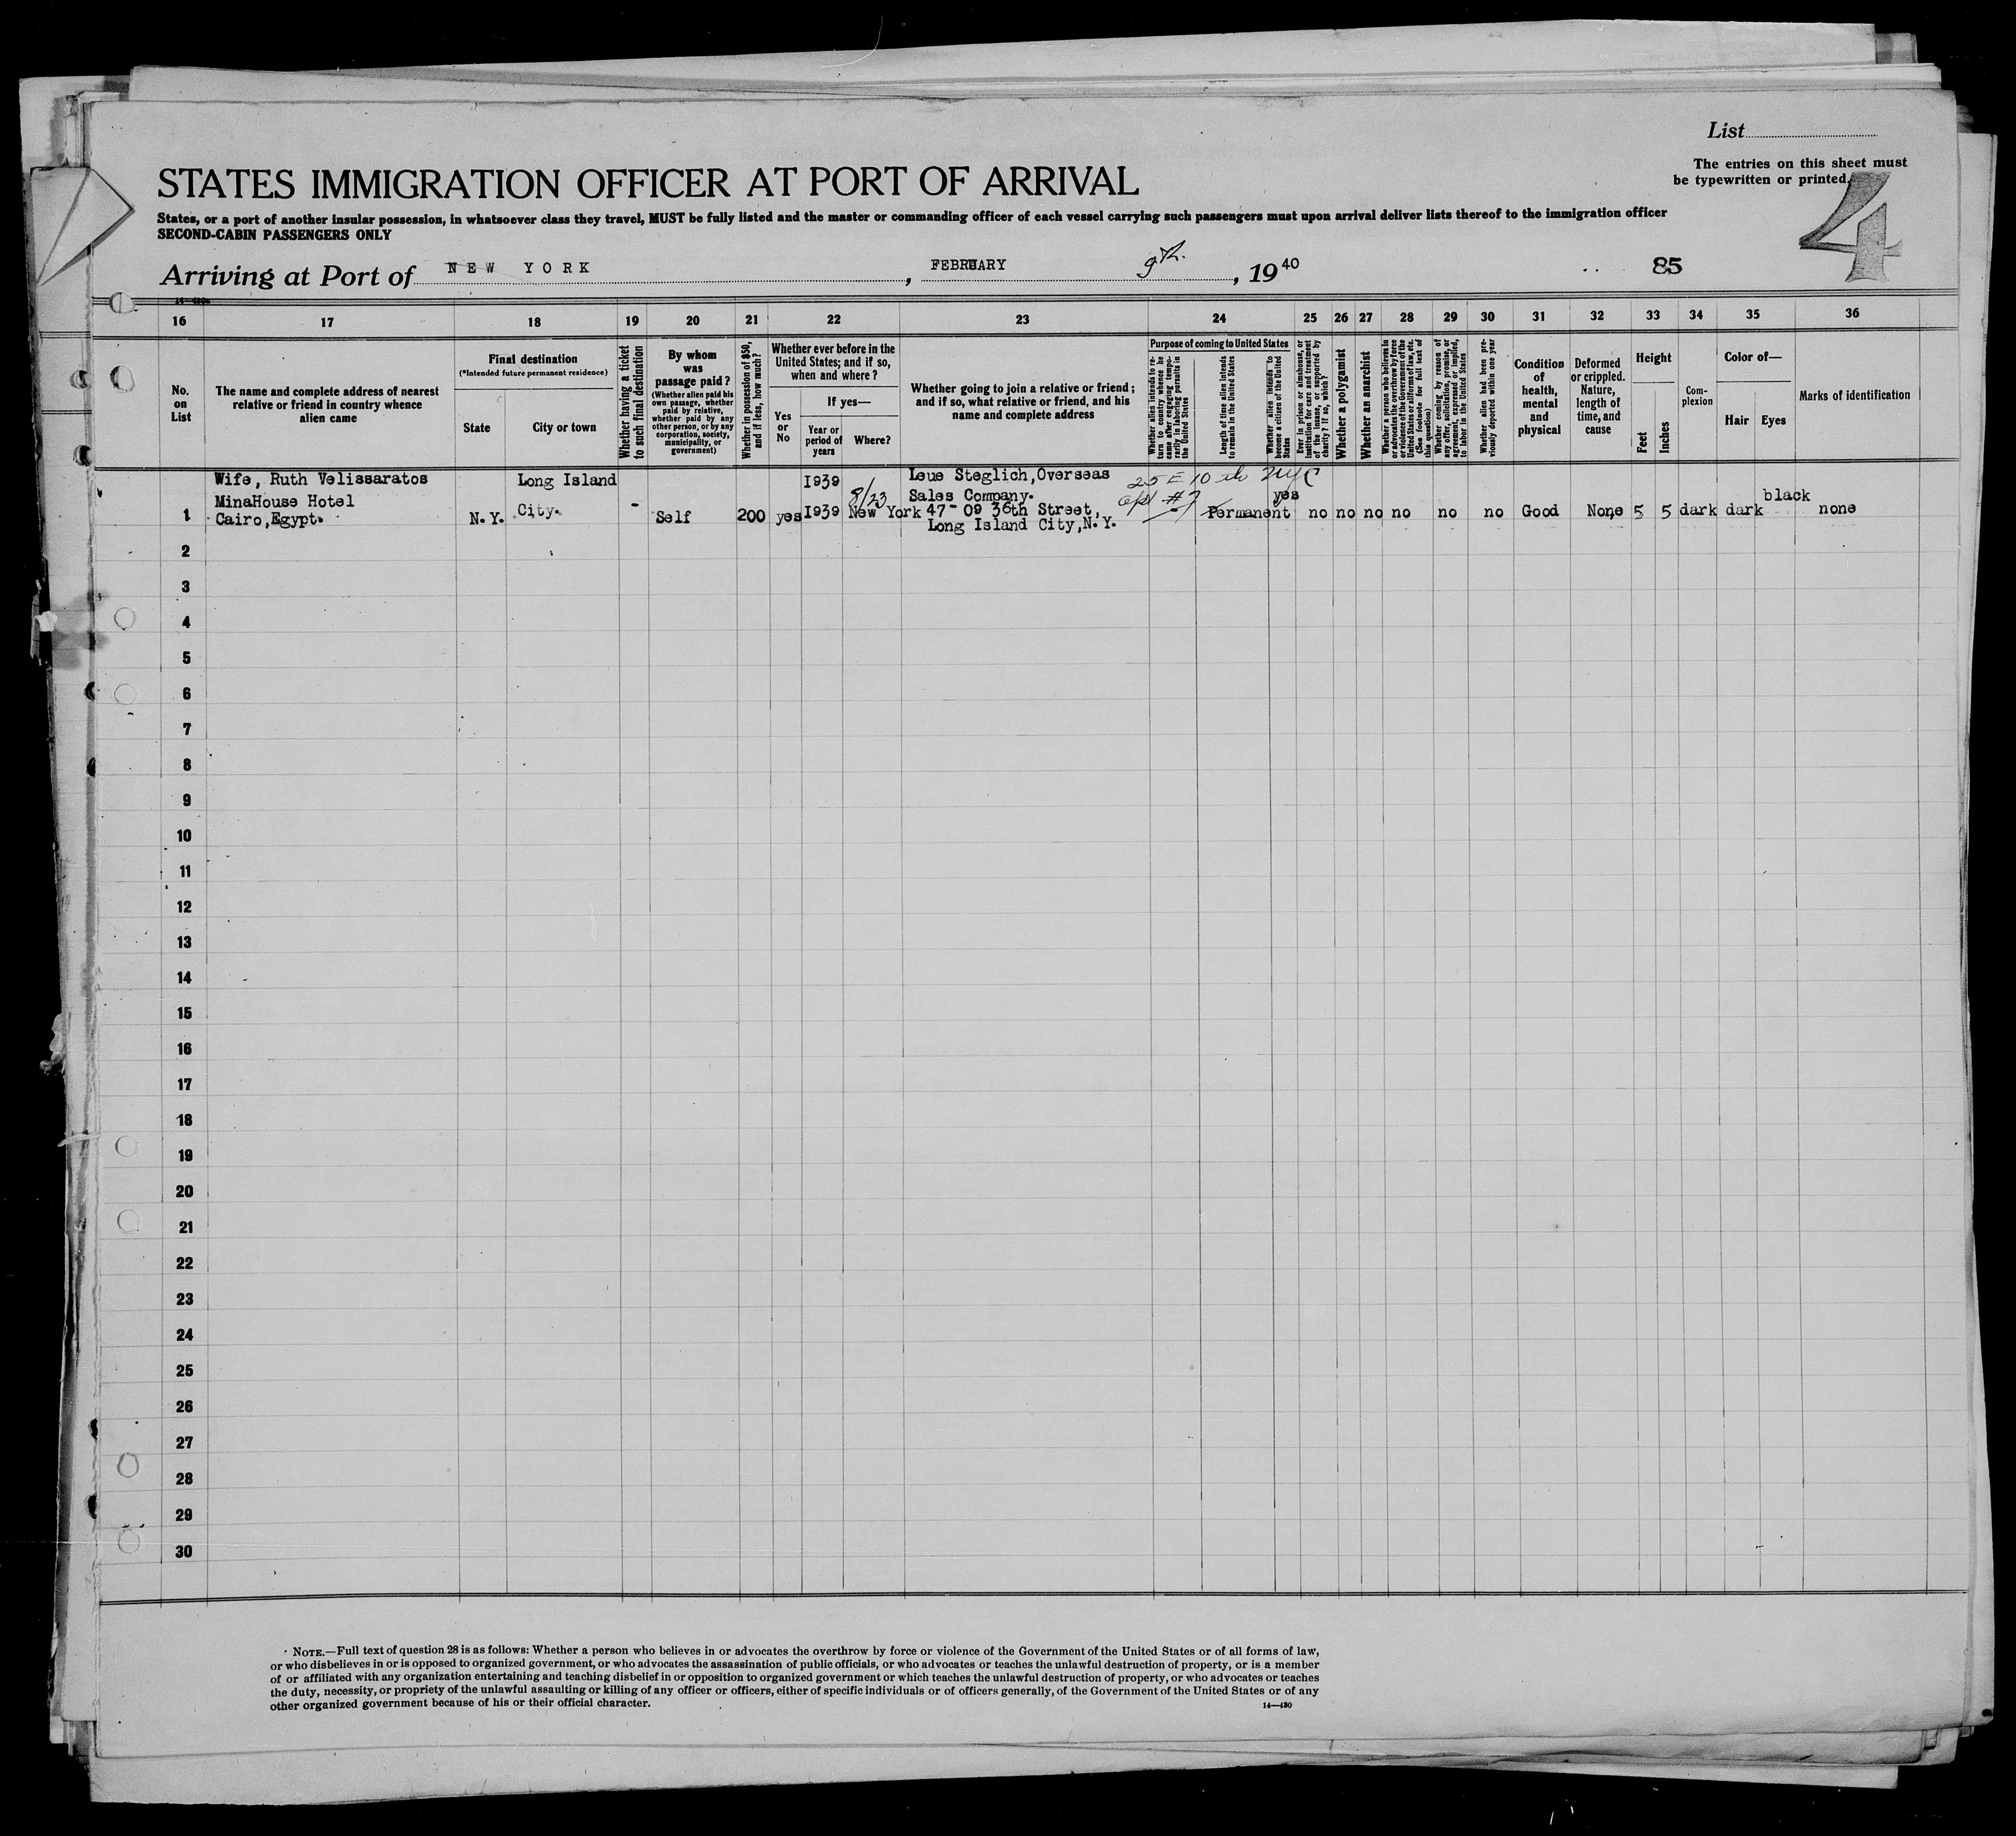 List
The entries on this sheet must
be typewritten or printed.
4
STATES IMMIGRATION OFFICER AT PORT OF ARRIVAL
States, or a port of another insular possession, in whatsoever class they travel, MUST be fully listed and the master or commanding officer of each vessel carrying such passengers must upon arrival deliver lists thereof to the immigration officer
SECOND-CABIN PASSENGERS ONLY
Arriving at Port of NEW YORK, FEBRUARY 9th., 1940
85
16 17 18 19 20 21 22 23 24 25 26 27 28 29 30 31 32 33 34 35 36
No. on List
The name and complete address of nearest relative or friend in country whence alien came
Final destination
(*Intended future permanent residence)
State
City or town
Whether having a ticket to such final destination
By whom was passage paid?
(Whether alien paid his own passage, whether paid by relative, whether paid by any other person, or by any corporation, society, municipality, or government)
Whether in possession of $50, and if less, how much?
Whether ever before in the United States; and if so, when and where?
Yes or No
If yes—
Year or period of years
Where?
Whether going to join a relative or friend; and if so, what relative or friend, and his name and complete address
Purpose of coming to United States
Whether alien intends to return to country whence he came after engaging temporarily in laboring pursuits in the United States
Length of time alien intends to remain in the United States
Whether alien intends to become a citizen of the United States
Ever in prison or almshouse, or institution for care and treatment of the insane, or supported by charity? If so, which?
Whether a polygamist
Whether an anarchist
Whether a person who believes in or advocates the overthrow by force or violence of the Government of the United States or all forms of law, etc. (See footnote for full text of this question)
Whether coming by reason of any offer, solicitation, promise, or agreement, expressed or implied, to labor in the United States
Whether alien had been previously deported within one year
Condition of health, mental and physical
Deformed or crippled. Nature, length of time, and cause
Height
Feet
Inches
Complexion
Color of—
Hair
Eyes
Marks of identification
Wife, Ruth Velissaratos Long Island 1939 Leue Steglich,Overseas 25 E 10 th NYC
MinaHouse Hotel 8/23 Sales Company. apt #7 yes black
1 Cairo,Egypt. N.Y. City. - Self 200 yes 1939 New York 47- 09 36th Street, - Permanent no no no no no no Good None 5 5 dark dark none
Long Island City,N.Y.
2
3
4
5
6
7
8
9
10
11
12
13
14
15
16
17
18
19
20
21
22
23
24
25
26
27
28
29
30
NOTE.—Full text of question 28 is as follows: Whether a person who believes in or advocates the overthrow by force or violence of the Government of the United States or of all forms of law,
or who disbelieves in or is opposed to organized government, or who advocates the assassination of public officials, or who advocates or teaches the unlawful destruction of property, or is a member
of or affiliated with any organization entertaining and teaching disbelief in or opposition to organized government or which teaches the unlawful destruction of property, or who advocates or teaches
the duty, necessity, or propriety of the unlawful assaulting or killing of any officer or officers, either of specific individuals or of officers generally, of the Government of the United States or of any
other organized government because of his or their official character.
14—430